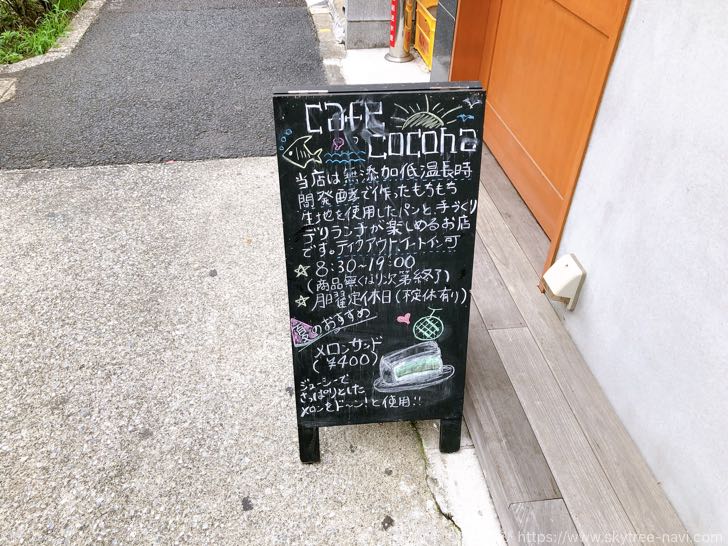 cafe
cocona
当店は無添加低温長時
間発酵で作ったもちもち
生地を使用したパンと、手づくり
デリランチが楽しめるお店
です。テイクアウト・イートイン可
☆ 8:30~19:00
(商品無くなり次第終了)
☆ 月曜定休日(不定休有り)
夏のおすすめ
メロンサンド
(¥400)
ジューシーで
さっぱりとした
メロンをド〜ン!と使用!!
https://www.skytree-navi.com